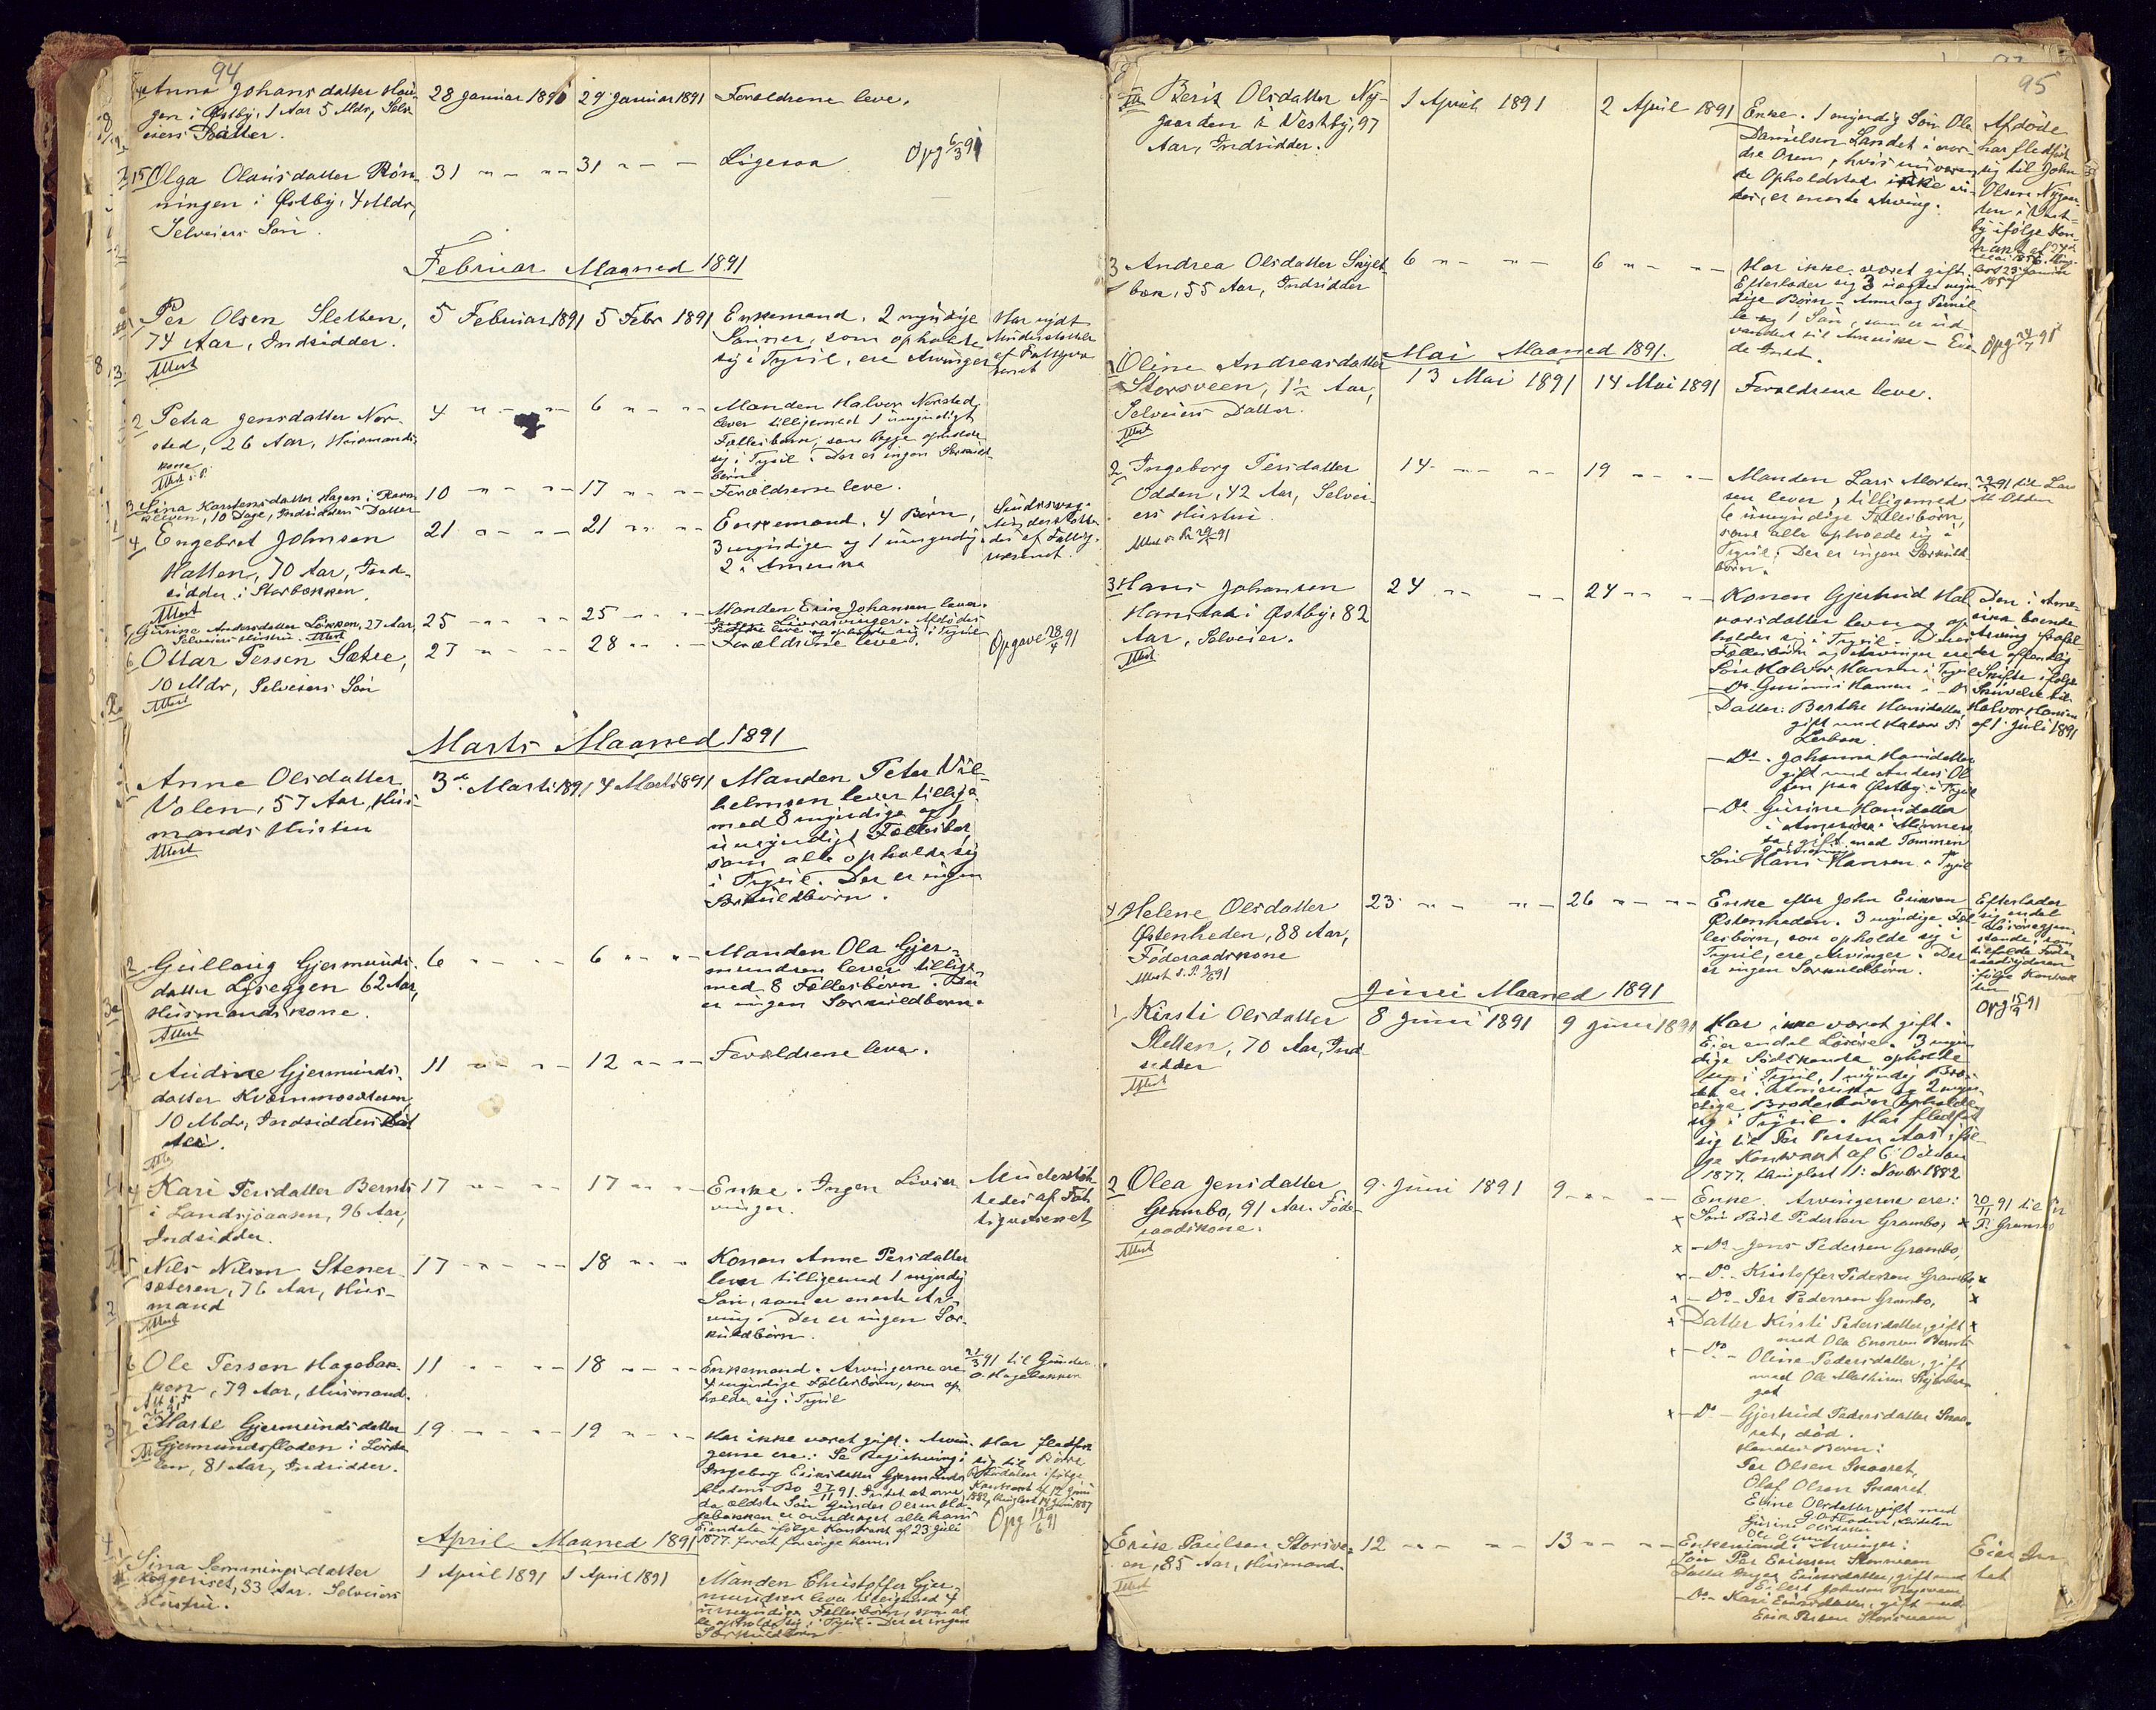 94
Anna Johansdatter Hau-
gen i Østby, 1 Aar 5 Mdr, Selv-
eiers Datter.
28 Januar 1891
29 Januar 1891
Forældrene leve.
15 Olga Olausdatter Rön-
ningen i Østby, 4 Mdr,
Selveiers Sön.
31 " — "
31 " — —
Ligesaa
Opg 6/3 91
Februar Maaned 1891
Per Olsen Sletten,
74 Aar, Indsidder.
Attest
5 Februar 1891
5 Febr 1891
Enkemand. 2 myndige
Sönner, som opholde
sig i Trysil, ere Arvinger
Har nydt
Understöttelse
af Fattigvæ-
senet
2 Petra Jensdatter Nor-
sted, 26 Aar, Husmands-
kone
4 " — "
6 " — "
Manden Halvor Norsted
lever tilligemed 1 umyndigt
Fællesbarn, som begge opholde
sig i Trysil. Der er ingen Særkuld-
börn.
3 Lina Karstensdatter Hagen i
10 Dage, Indsidders Datter
10 " — "
17 " — "
Forældrene leve.
4 Engebret Johnsen
Hatten, 70 Aar, Ind-
sidder i Storbækken
Attest
21 " — "
21 " — "
Enkemand, 4 Börn,
3 myndige og 1 umyndig.
2 i Amerika
Sindssvag.
Understötte-
des af Fattig-
væsenet.
5 Gurine Andersdatter Løkken, 27 Aar,
Selveiers Hustru. Attest
25 " — "
25 " — "
Manden Erik Johansen lever.
Ingen Livsarvinger. Afdödes
Forældre leve og opholde sig i Trysil
6 Ottar Persen Sætre,
10 Mdr, Selveiers Sön
Attest
27 " — "
28 " — "
Forældrene leve.
Opgave 28/4 91
Marts Maaned 1891
Anne Olsdatter
Volen, 57 Aar, Hus-
mands Hustru
Attest
3de Marts 1891
4 Marts 1891
Manden Peter Vil-
helmsen lever tillige-
med 8 myndige og 1
umyndigt Fællesbar,
som alle opholde sig
i Trysil. Der er ingen
Særkuldbörn.
2 Gullaug Gjermunds-
datter Lyseggen 62 Aar,
Husmandskone.
Attest
6 " — "
6 " — "
Manden Ola Gjer-
mundsen lever tillige-
med 8 Fællesbörn. Der
er ingen Særkuldbörn.
Audine Gjermunds-
datter Kværnmosæteren,
10 Mdr, Indsidders Dat-
ter.
11 " — "
12 " — "
Forældrene leve.
4 Kari Persdatter Bernts
i Landsjöaasen, 96 Aar,
Indsidder.
17 " — "
17 " — "
Enke. Ingen Livsar-
vinger.
Understöt-
tedes af Fat-
tigvæsenet
5 Nils Nilsen Stener-
sæteren, 76 Aar, Hus-
mand
Attest
17 " — "
18 " — "
Konen Anne Persdatter
lever tilligemed 1 myndig
Sön, som er eneste Ar-
ving. Der er ingen Sær-
kuldbörn.
6 Ole Persen Hagebak-
ken, 79 Aar, Husmand.
11 " — "
18 " — "
Enkemand. Arvingerne ere
4 myndige Fællesbörn, som op-
holde sig i Trysil
21/3 91 til Gunder
O. Hagebakken
7 Marte Gjermundsdatter
Gjermundsfloden i Lörda-
len, 81 Aar, Indsidder.
19 " — "
19 " — "
Har ikke været gift. Arvin-
gerne ere: Se Registrering i
Ingeborg Eriksdatter Gjermunds-
flodens Bo 27/11 91. Intet at arve,
da ældste Sön Gunder Olsen Ha-
gebakken er overdraget alle hans
Eiendele ifölge Kontrakt af 23 Juli
1877 for at forsörge ham.
Har fledfört
sig til
ifölge
Kontrakt af 12 Juni
1882, thinglæst 14 Juni 1887
Opg 19/6 91
April Maaned 1891
Lina Semmingsdatter
Skjæggeriset, 33 Aar. Selveiers
Hustru.
1 April 1891
1 April 1891
Manden Christoffer Gjer-
mundsen lever tilligemed 4
umyndige Fællesbörn, som al-
le opholde sig i Trysil. Der er ingen
Særkuldbörn
95
Berit Olsdatter Ny-
gaarden i Vestby, 97
Aar, Indsidder.
1 April 1891
2 April 1891
Enke. 1 myndig Sön Ola
Danielsen Landet i nor-
dre Osen, hvis nuværen-
de Opholdsted ikke vi-
des, er eneste Arving.
Afdöde
har fledfört
sig til John
Olsen Nygaar-
den i Vest-
by ifölge Kon-
trakt af 24de
Mai 1856, thing-
læst 23 Januar
1857
3 Andrea Olsdatter Skjel-
bæk, 55 Aar, Indsidder
6 " — "
6 " — "
Har ikke været gift.
Efterlader sig 3 uægte myn-
dige Börn – Anna og Pernil-
le og 1 Sön, som er ud-
vandret til Amerika – Eie-
de Intet.
Opg 24/7 91
Mai Maaned 1891.
1 Oline Andreasdatter
Storsveen, 1 1/2 Aar,
Selveiers Datter.
Attest
13 Mai 1891
14 Mai 1891
Forældrene leve.
2 Ingeborg Persdatter
Odden, 42 Aar, Selvei-
ers Hustru.
14 " — "
19 " — "
Manden Lars Morten-
sen lever, tilligemed
6 umyndige Fællesbörn,
som alle opholde sig i
Trysil. Der er ingen Særkuld-
börn.
91 til Lars
M. Odden
3 Hans Johansen
Hanstad i Østby, 82
Aar, Selveier.
Attest
24 " — "
24 " — "
Konen Gjertrud Hal-
vorsdatter lever og op-
holder sig i Trysil. Deres
Fællesbörn og Arvinger ere
Sön Halvor Hansen i Trysil
— Do. Gunnius Hansen i – Do
Datter: Berthe Hansdatter,
gift med Halvor P.
Lerbak
— Do. Johanna Hansdatter
gift med Anders Ol-
sen paa Østby i Trysil
— Do Gurine Hansdatter
i Amerika i Minneso-
ta, gift med Tommen
Sön Hans Hansen i Trysil
Den i Ame-
rika boende
Arving frafal-
der offentlig
Skifte ifölge
Skrivelse til
Halvor Hansen
af 1 Juli 1891
4 Helene Olsdatter
Østenheden, 88 Aar,
Föderaadskone
23 " — "
26 " — "
Enke efter John Eriksen
Østenheden. 3 myndige Fæl-
lesbörn, som opholde sig i
Trysil, ere Arvinger. Der
er ingen Særkuldbörn.
Efterlader
sig endel
Lösöregjen-
stande, som
tilfalde Föde-
raadsyderen
ifölge Kontrak-
ten
Opg 15/9 91
Juni Maaned 1891
1 Kirsti Olsdatter
Sletten, 70 Aar, Ind-
sidder
Attest
8 Juni 1891
9 Juni 1891
Har ikke været gift.
Eier endel Lösöre. 3 myn-
dige Södskende opholde
sig i Trysil, 1 myndig Bro-
der er i Amerika og 2 myn-
dige Broderbörn opholde
sig i Trysil. Har fledfört
sig til Per Persen Aas iföl-
ge Kontrakt af 6 October
1877, thinglæst 11 Novbr 1882
2 Olea Jensdatter
Grambo, 91 Aar. Föde-
raadskone.
Attest
9 Juni 1891
9 " — "
Enke. Arvingerne ere:
x Sön Paul Pedersen Grambo, x
x — Do – Jens Pedersen Grambo,
x — Do – Kristoffer Pedersen Grambo x
x — Do – Per Pedersen Grambo, x
x Datter Kirsti Pedersdatter, gift x
med Ola Enersen Bernts
x — Do – Oline Pedersdatter, gift
med Ole Mathisen Skjærber-
get
x — Do – Gjertrud Pedersdatter Snaa-
ret, död.
Hendes Börn:
Per Olsen Snaaret,
Olaf Olsen Snaaret
Eline Olsdatter, gift med
Gurine Olsdatter
20/11 91 til
P. Grambo
Erik Paulsen Storsve-
en, 85 Aar, Husmand.
Attest
12 " — "
13 " — "
Enkemand. Arvinger:
Sön Per Eriksen Storsveen
Datter Inger Eriksdatter, gift med
Eilert Johnsen Nysveen
— Do – Kari Eriksdatter, gift med
Erik Persen Storsveen
Eier In-
tet